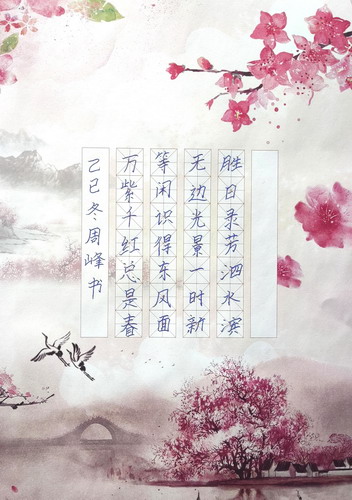 胜日录芳泗水滨
无边光景一时新
等闲识得东风面
万紫千红总是春
乙巳冬周峰书